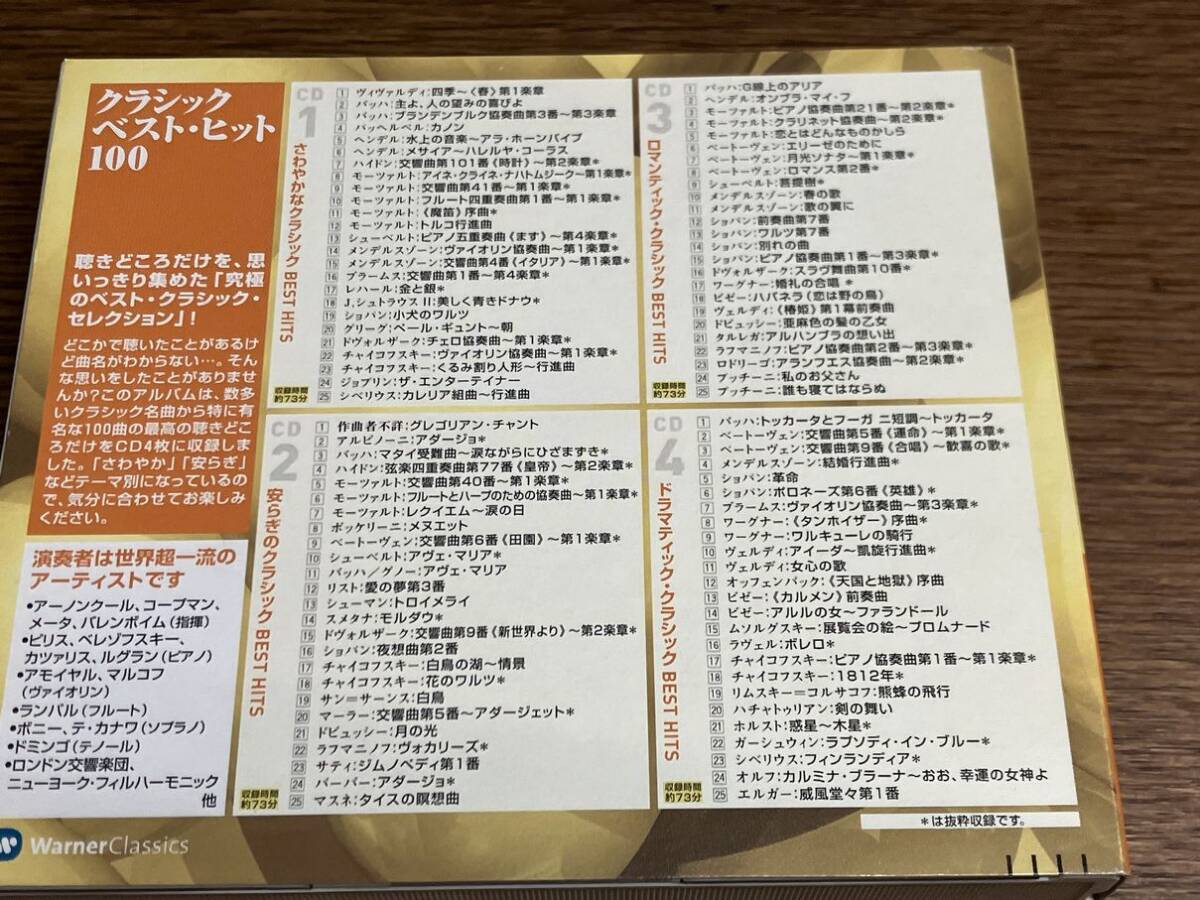 クラシック
ベスト・ヒット
100
聴きどころだけを、思
いっきり集めた「究極
のベスト・クラシック・
セレクション」!
どこかで聴いたことがあるけ
ど曲名がわからない…。そん
な思いをしたことがありませ
んか?このアルバムは、数多
いクラシック名曲から特に有
名な100曲の最高の聴きどこ
ろだけをCD4枚に収録しま
した。「さわやか」「安らぎ」
などテーマ別になっているの
で、気分に合わせてお楽しみ
ください。
演奏者は世界超一流の
アーティストです
•アーノンクール、コープマン、
メータ、バレンボイム(指揮)
•ピリス、ベレゾフスキー、
カツァリス、ルグラン(ピアノ)
•アモイヤル、マルコフ
(ヴァイオリン)
•ランパル(フルート)
•ボニー、テ・カナワ(ソプラノ)
•ドミンゴ(テノール)
•ロンドン交響楽団、
ニューヨーク・フィルハーモニック
他
WarnerClassics
CD
1
さわやかなクラシック BEST HITS
収録時間
約73分
1 ヴィヴァルディ:四季~〈春〉第1楽章
2 バッハ:主よ、人の望みの喜びよ
3 バッハ:ブランデンブルク協奏曲第3番~第3楽章
4 パッヘルベル:カノン
5 ヘンデル:水上の音楽~アラ・ホーンパイプ
6 ヘンデル:メサイア~ハレルヤ・コーラス
7 ハイドン:交響曲第101番《時計》~第2楽章*
8 モーツァルト:アイネ・クライネ・ナハトムジーク~第1楽章*
9 モーツァルト:交響曲第41番~第1楽章*
10 モーツァルト:フルート四重奏曲第1番~第1楽章*
11 モーツァルト:《魔笛》序曲*
12 モーツァルト:トルコ行進曲
13 シューベルト:ピアノ五重奏曲《ます》~第4楽章*
14 メンデルスゾーン:ヴァイオリン協奏曲~第1楽章*
15 メンデルスゾーン:交響曲第4番《イタリア》~第1楽章*
16 ブラームス:交響曲第1番~第4楽章*
17 レハール:金と銀*
18 J.シュトラウスII:美しく青きドナウ*
19 ショパン:小犬のワルツ
20 グリーグ:ペール・ギュント~朝
21 ドヴォルザーク:チェロ協奏曲~第1楽章*
22 チャイコフスキー:ヴァイオリン協奏曲~第1楽章*
23 チャイコフスキー:くるみ割り人形~行進曲
24 ジョプリン:ザ・エンターテイナー
25 シベリウス:カレリア組曲~行進曲
CD
3
ロマンティック・クラシック BEST HITS
収録時間
約73分
1 バッハ:G線上のアリア
2 ヘンデル:オンブラ・マイ・フ
3 モーツァルト:ピアノ協奏曲第21番~第2楽章*
4 モーツァルト:クラリネット協奏曲~第2楽章*
5 モーツァルト:恋とはどんなものかしら
6 ベートーヴェン:エリーゼのために
7 ベートーヴェン:月光ソナタ~第1楽章*
8 ベートーヴェン:ロマンス第2番*
9 シューベルト:菩提樹*
10 メンデルスゾーン:春の歌
11 メンデルスゾーン:歌の翼に
12 ショパン:前奏曲第7番
13 ショパン:ワルツ第7番
14 ショパン:別れの曲
15 ショパン:ピアノ協奏曲第1番~第3楽章*
16 ドヴォルザーク:スラヴ舞曲第10番*
17 ワーグナー:婚礼の合唱 *
18 ビゼー:ハバネラ(恋は野の鳥)
19 ヴェルディ:《椿姫》第1幕前奏曲
20 ドビュッシー:亜麻色の髪の乙女
21 タルレガ:アルハンブラの想い出
22 ラフマニノフ:ピアノ協奏曲第2番~第3楽章*
23 ロドリーゴ:アランフェス協奏曲~第2楽章*
24 プッチーニ:私のお父さん
25 プッチーニ:誰も寝てはならぬ
CD
2
安らぎのクラシック BEST HITS
収録時間
約73分
1 作曲者不詳:グレゴリアン・チャント
2 アルビノーニ:アダージョ*
3 バッハ:マタイ受難曲~涙ながらにひざまずき*
4 ハイドン:弦楽四重奏曲第77番《皇帝》~第2楽章*
5 モーツァルト:交響曲第40番~第1楽章*
6 モーツァルト:フルートとハープのための協奏曲~第1楽章*
7 モーツァルト:レクイエム~涙の日
8 ボッケリーニ:メヌエット
9 ベートーヴェン:交響曲第6番《田園》~第1楽章*
10 シューベルト:アヴェ・マリア*
11 バッハ/グノー:アヴェ・マリア
12 リスト:愛の夢第3番
13 シューマン:トロイメライ
14 スメタナ:モルダウ*
15 ドヴォルザーク:交響曲第9番《新世界より》~第2楽章*
16 ショパン:夜想曲第2番
17 チャイコフスキー:白鳥の湖~情景
18 チャイコフスキー:花のワルツ*
19 サン=サーンス:白鳥
20 マーラー:交響曲第5番~アダージェット*
21 ドビュッシー:月の光
22 ラフマニノフ:ヴォカリーズ*
23 サティ:ジムノペディ第1番
24 バーバー:アダージョ*
25 マスネ:タイスの瞑想曲
CD
4
ドラマティック・クラシック BEST HITS
収録時間
約73分
1 バッハ:トッカータとフーガ ニ短調~トッカータ
2 ベートーヴェン:交響曲第5番《運命》~第1楽章*
3 ベートーヴェン:交響曲第9番《合唱》~歓喜の歌*
4 メンデルスゾーン:結婚行進曲*
5 ショパン:革命
6 ショパン:ポロネーズ第6番《英雄》*
7 ブラームス:ヴァイオリン協奏曲~第3楽章*
8 ワーグナー:《タンホイザー》序曲*
9 ワーグナー:ワルキューレの騎行
10 ヴェルディ:アイーダ~凱旋行進曲*
11 ヴェルディ:女心の歌
12 オッフェンバック:《天国と地獄》序曲
13 ビゼー:《カルメン》前奏曲
14 ビゼー:アルルの女~ファランドール
15 ムソルグスキー:展覧会の絵~プロムナード
16 ラヴェル:ボレロ*
17 チャイコフスキー:ピアノ協奏曲第1番~第1楽章*
18 チャイコフスキー:1812年*
19 リムスキー=コルサコフ:熊蜂の飛行
20 ハチャトゥリアン:剣の舞い
21 ホルスト:惑星~木星*
22 ガーシュウィン:ラプソディ・イン・ブルー*
23 シベリウス:フィンランディア*
24 オルフ:カルミナ・ブラーナ~おお、幸運の女神よ
25 エルガー:威風堂々第1番
*は抜粋収録です。